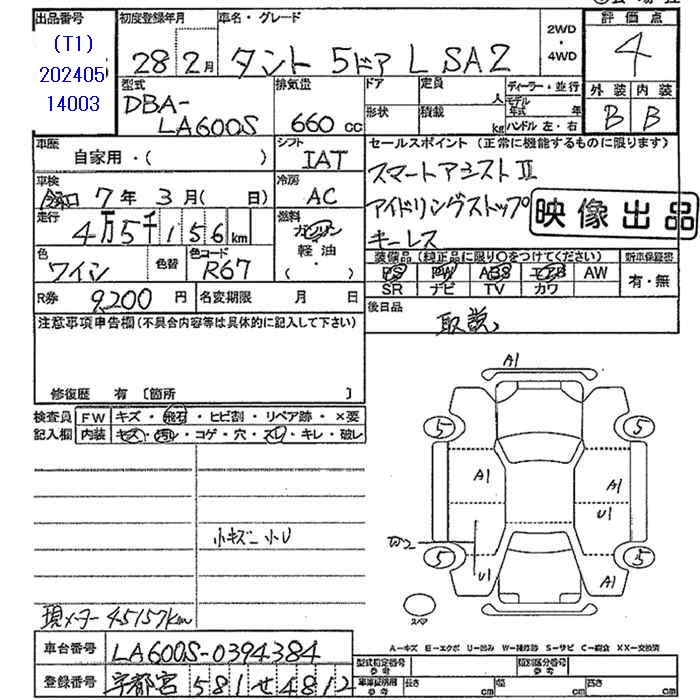 出品番号
(T1)
202405
14003
初度登録年月
28 2月
車名・グレード
タント 5ドア L SA2
2WD
・
4WD
評価点
4
外装 内装
B B
型式
DBA-
LA600S
排気量
660 cc
ドア
形状
定員
人
積載
kg
ディーラー・並行
モデル
年式 年
ハンドル 左・右
車歴
自家用・( )
シフト
IAT
車検
令和 7年 3月( 日)
冷房
AC
走行
4万5千156km
燃料
ガソリン
軽油
・( )
色
ワイン
色替
色コード
R67
R券 9,200 円
名変期限 月 日
セールスポイント(正常に機能するものに限ります)
スマートアシストⅡ
アイドリングストップ
キーレス
映像出品
装備品(純正品に限り○をつけてください)
新車保証書
PS PW ABS エアB AW
SR ナビ TV カワ
有・無
後日品
取説、
注意事項申告欄(不具合内容等は具体的に記入して下さい)
修復歴 有〔箇所 〕
検査員
記入欄
FW キズ・飛石・ヒビ割・リペア跡・×要
内装 キズ・汚れ・コゲ・穴・スレ・キレ・破レ
小キズ 小U
現メーター 45157km
A1
5
5
A1
A1
U1
U1
A1
5
5
スペア
A-キズ E-エクボ U-凹み W-補修跡 S-サビ C-腐食 XX-交換済
車台番号 LA600S-0394384
登録番号 宇都宮 581 せ 4812
型式指定番号
参考
類別区分番号
参考
車庫証明用
参考
長さ cm
幅 cm
高さ cm